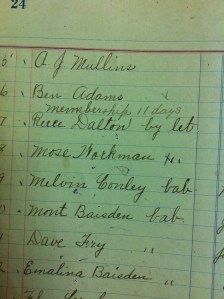 24
5 A. J. Mullins
6 Ben Adams
membership 11 days
7 Reece Dalton by let.
8 Mose Workman
9 Melvin Conley bab.
0 Mont Baisden bab.
1 Dave Fry "
Emalina Baisden "